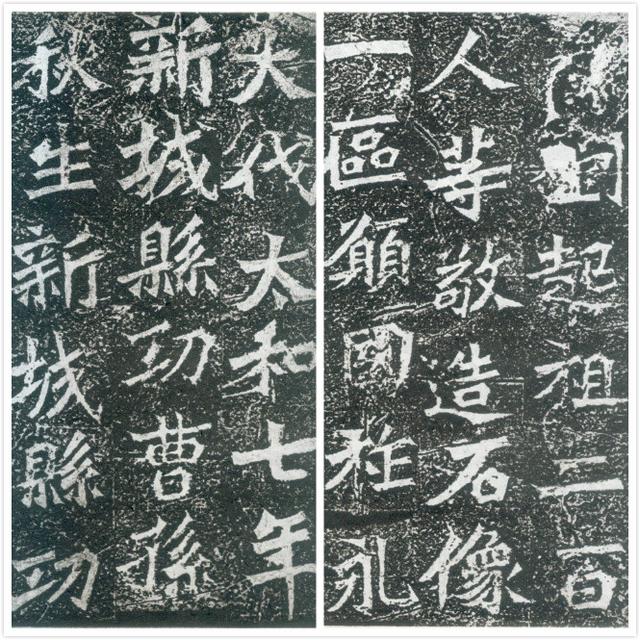 大代太和七年
新城縣功曹孫
秋生新城縣功
起祖二百
人等敬造石像
一區願國祚永